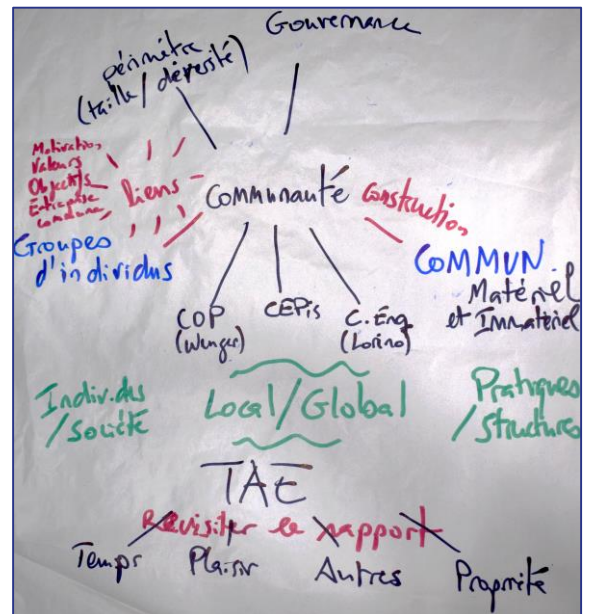 Gouvernance
périmètre
(taille/diversité)
Motivation
Valeurs
Objectifs
Entreprise
commune
liens
Communauté
Construction
Groupes
d'individus
COMMUN
Matériel
et Immatériel
COP
(Wenger)
CEPis
C. Enq
(Lorino)
Individus
/Société
Local/Global
Pratiques
/Structures
TAE
Revisiter le rapport
Temps
Plaisir
Autres
Propriété